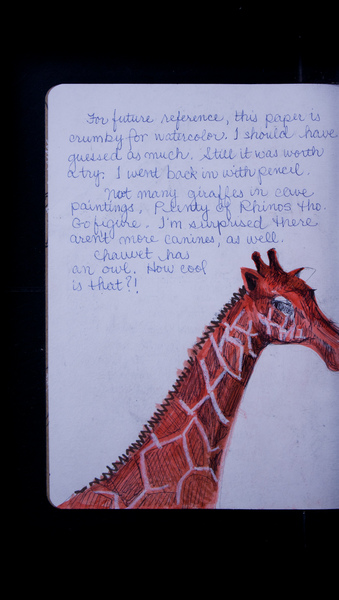 For future reference, this paper is
crumby for watercolor. I should have
guessed as much. Still it was worth
a try. I went back in with pencil.
Not many giraffes in cave
paintings, Plenty of Rhinos tho.
Go figure. I'm surprised there
aren't more canines, as well.
Chauvet has
an owl. How cool
is that?!